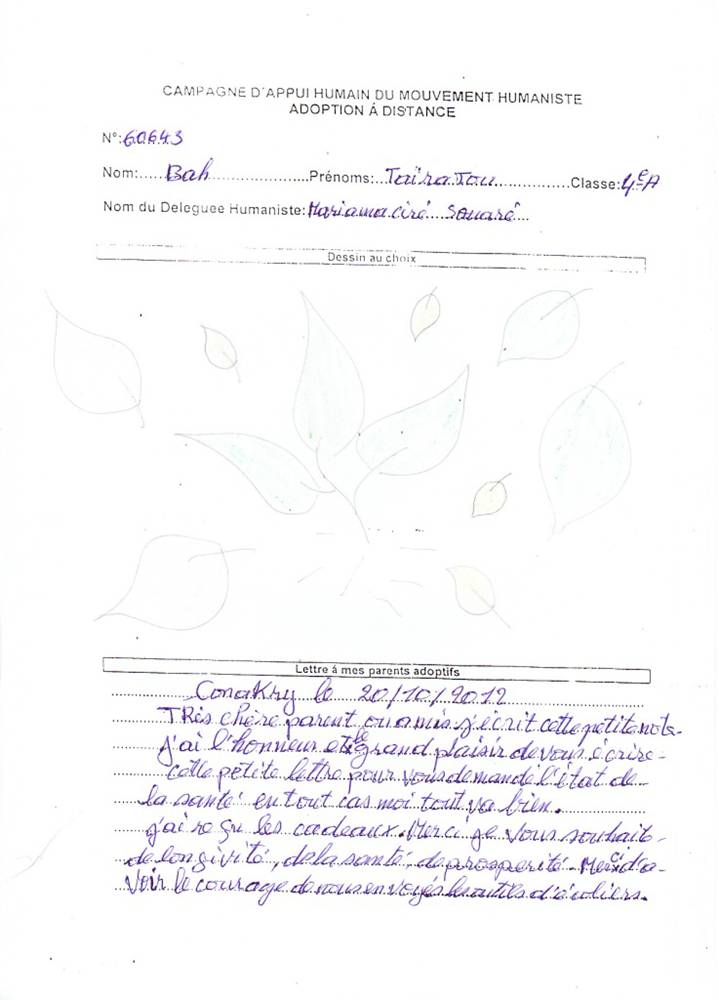 CAMPAGNE D'APPUI HUMAIN DU MOUVEMENT HUMANISTE
ADOPTION Á DISTANCE
N°: 60643
Nom:.....Bah....................Prénoms:...TaïraTou.................Classe:4e A
Nom du Deleguee Humaniste: Mariama ciré....Souaré...
Dessin au choix
Lettre á mes parents adoptifs
Conakry le 20/10/2012
TRès chère parent ou amis j'écrit cette petite note.
J'ai l'honneur et le grand plaisir de vous écrire
cette petite lettre pour vous demande l'état de
la santé en tout cas moi tout va bien.
j'ai reçu les cadeaux. Merci je vous souhait
de longivité, de la santé, de prosperité. Merci d'a-
voir le courage de nous envoyés les outils d'écoliers.